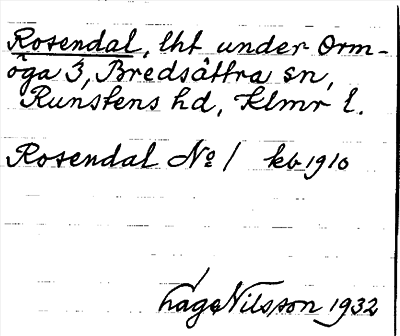 Rosendal, lht under Orm-
öga 3, Bredsättra sn,
Runstens hd, Klmr l.
Rosendal No 1 kb 1910
Lage Nilsson 1932